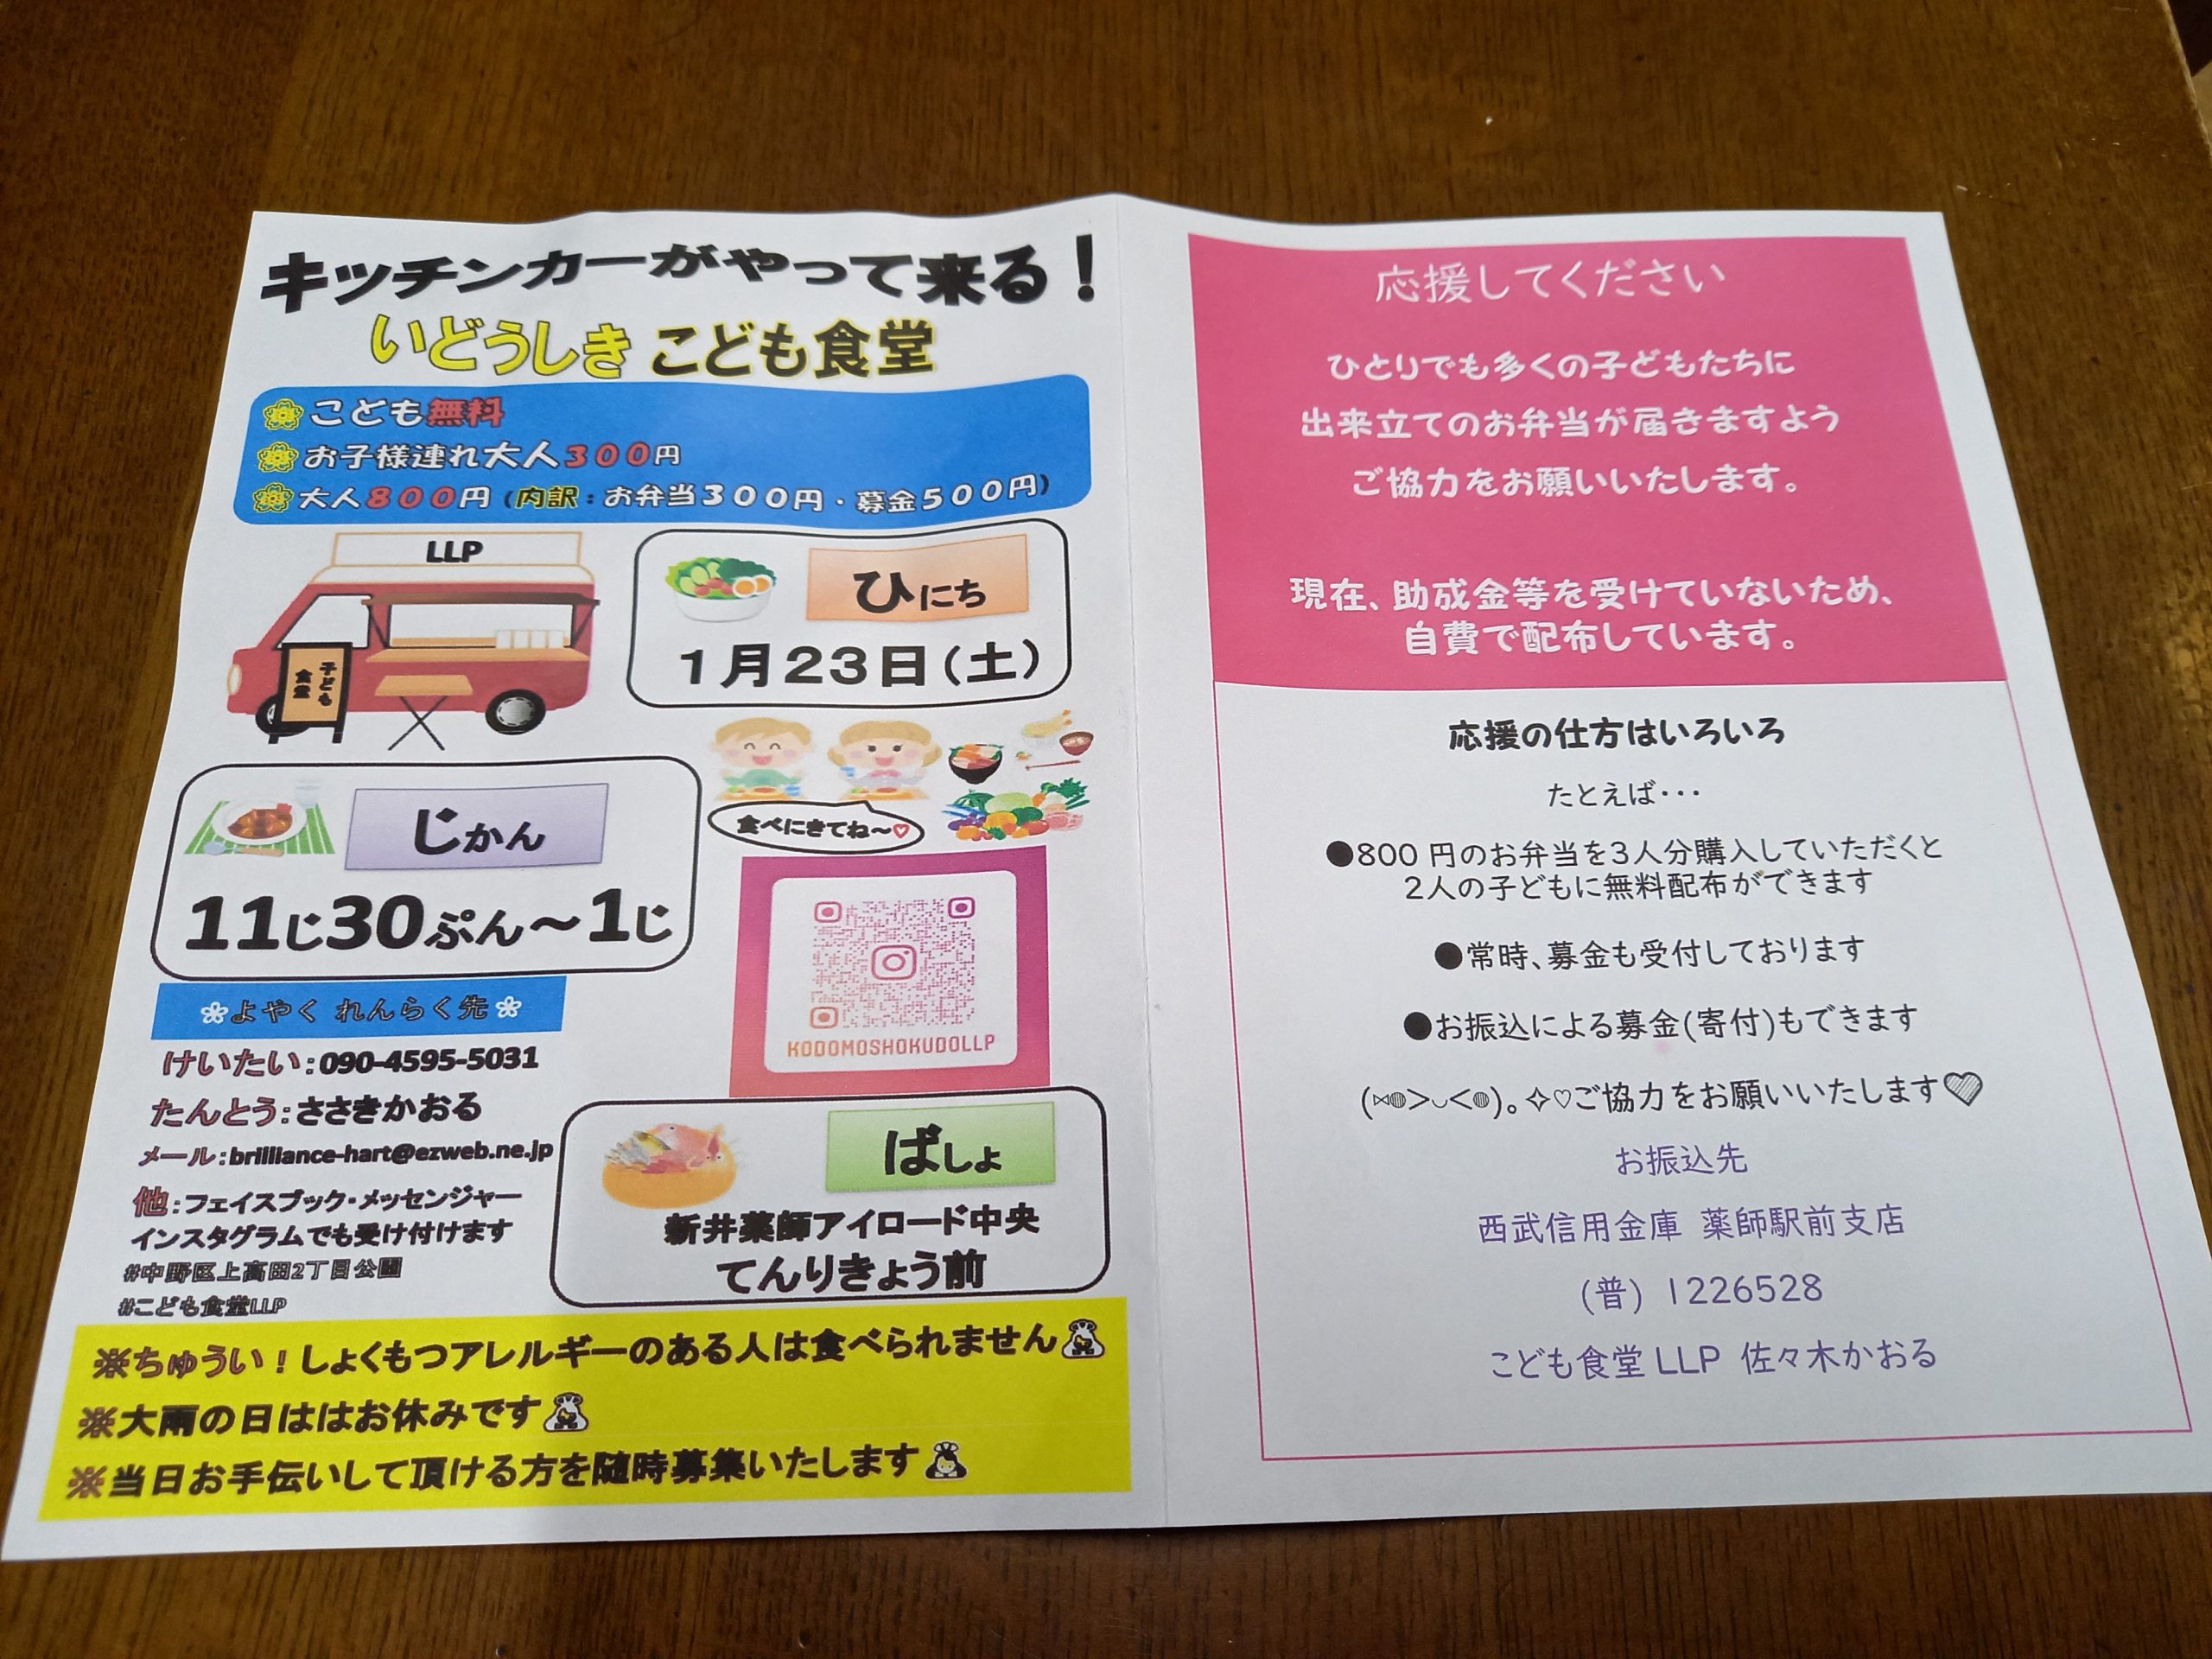 キッチンカーがやって来る！
いどうしき こども食堂
こども無料
お子様連れ大人300円
大人800円(内訳：お弁当300円・募金500円)
LLP
子ども
食堂
ひにち
1月23日(土)
じかん
11じ30ぷん～1じ
食べにきてね～♡
KODOMOSHOKUDOLLP
よやく れんらく先
けいたい：090-4595-5031
たんとう：ささきかおる
メール：brilliance-hart@ezweb.ne.jp
他：フェイスブック・メッセンジャー
インスタグラムでも受け付けます
#中野区上高田2丁目公園
#こども食堂LLP
ばしょ
新井薬師アイロード中央
てんりきょう前
※ちゅうい！しょくもつアレルギーのある人は食べられません
※大雨の日ははお休みです
※当日お手伝いして頂ける方を随時募集いたします
応援してください
ひとりでも多くの子どもたちに
出来立てのお弁当が届きますよう
ご協力をお願いいたします。
現在、助成金等を受けていないため、
自費で配布しています。
応援の仕方はいろいろ
たとえば・・・
●800円のお弁当を3人分購入していただくと
2人の子どもに無料配布ができます
●常時、募金も受付しております
●お振込による募金(寄付)もできます
(⋈◍＞◡＜◍)。✧♡ご協力をお願いいたします♡
お振込先
西武信用金庫 薬師駅前支店
(普) 1226528
こども食堂LLP 佐々木かおる